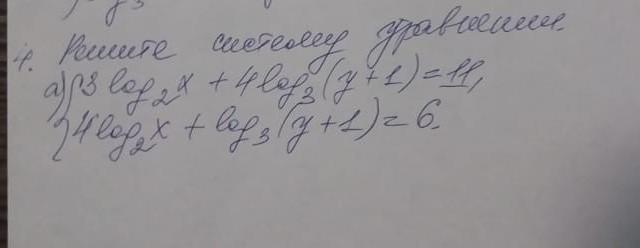 4. Решите систему уравнений.
а) { 3 log₂x + 4 log₃(y+1) = 11,
4 log₂x + log₃(y+1) = 6.